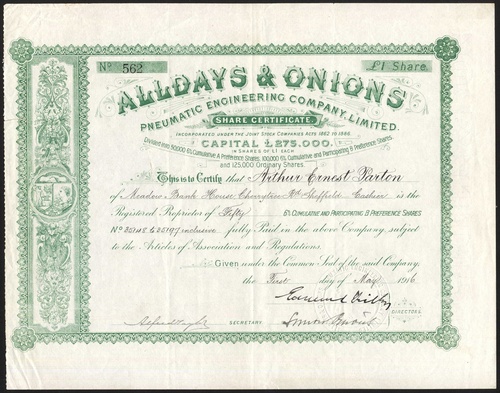 No 562
£1 Share.
ALLDAYS & ONIONS
PNEUMATIC ENGINEERING COMPANY, LIMITED.
SHARE CERTIFICATE.
INCORPORATED UNDER THE JOINT STOCK COMPANIES ACTS 1862 TO 1898.
CAPITAL £275,000.
IN SHARES OF £1 EACH
Divided into 50,000 6% Cumulative A Preference Shares, 100,000 6% Cumulative and Participating B Preference Shares.
and 125,000 Ordinary Shares.
This is to Certify that Arthur Ernest Parton
of Meadow Bank House Cherrytree Rd Sheffield Cashier is the
Registered Proprietor of Fifty 6% CUMULATIVE AND PARTICIPATING B PREFERENCE SHARES
No inclusive fully Paid in the above Company, subject
to the Articles of Association and Regulations.
Given under the Common Seal of the said Company,
the First day of May 1916
SECRETARY
DIRECTORS